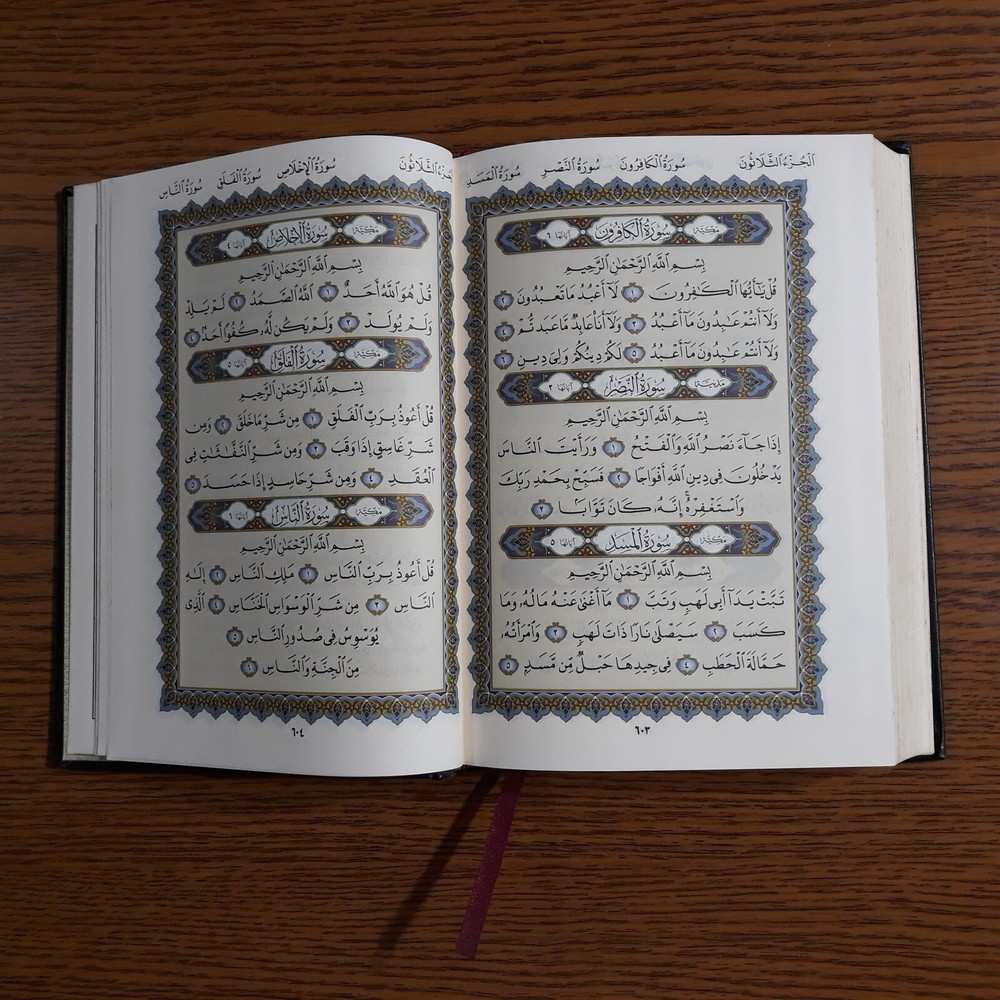 الجزء الثلاثون سورة الكافرون سورة النصر سورة المسد
مكية سورة الكافرون آياتها ٦
بِسْمِ اللَّهِ الرَّحْمَٰنِ الرَّحِيمِ
قُلْ يَا أَيُّهَا الْكَافِرُونَ ١ لَا أَعْبُدُ مَا تَعْبُدُونَ ٢
وَلَا أَنْتُمْ عَابِدُونَ مَا أَعْبُدُ ٣ وَلَا أَنَا عَابِدٌ مَا عَبَدْتُمْ ٤
وَلَا أَنْتُمْ عَابِدُونَ مَا أَعْبُدُ ٥ لَكُمْ دِينُكُمْ وَلِيَ دِينِ ٦
مدنية سورة النصر آياتها ٣
بِسْمِ اللَّهِ الرَّحْمَٰنِ الرَّحِيمِ
إِذَا جَاءَ نَصْرُ اللَّهِ وَالْفَتْحُ ١ وَرَأَيْتَ النَّاسَ
يَدْخُلُونَ فِي دِينِ اللَّهِ أَفْوَاجًا ٢ فَسَبِّحْ بِحَمْدِ رَبِّكَ
وَاسْتَغْفِرْهُ إِنَّهُ كَانَ تَوَّابًا ٣
مكية سورة المسد آياتها ٥
بِسْمِ اللَّهِ الرَّحْمَٰنِ الرَّحِيمِ
تَبَّتْ يَدَا أَبِي لَهَبٍ وَتَبَّ ١ مَا أَغْنَىٰ عَنْهُ مَالُهُ وَمَا
كَسَبَ ٢ سَيَصْلَىٰ نَارًا ذَاتَ لَهَبٍ ٣ وَامْرَأَتُهُ
حَمَّالَةَ الْحَطَبِ ٤ فِي جِيدِهَا حَبْلٌ مِنْ مَسَدٍ ٥
٦٠٣
الجزء الثلاثون سورة الإخلاص سورة الفلق سورة الناس
مكية سورة الإخلاص آياتها ٤
بِسْمِ اللَّهِ الرَّحْمَٰنِ الرَّحِيمِ
قُلْ هُوَ اللَّهُ أَحَدٌ ١ اللَّهُ الصَّمَدُ ٢ لَمْ يَلِدْ
وَلَمْ يُولَدْ ٣ وَلَمْ يَكُنْ لَهُ كُفُوًا أَحَدٌ ٤
مكية سورة الفلق آياتها ٥
بِسْمِ اللَّهِ الرَّحْمَٰنِ الرَّحِيمِ
قُلْ أَعُوذُ بِرَبِّ الْفَلَقِ ١ مِنْ شَرِّ مَا خَلَقَ ٢ وَمِنْ
شَرِّ غَاسِقٍ إِذَا وَقَبَ ٣ وَمِنْ شَرِّ النَّفَّاثَاتِ فِي
الْعُقَدِ ٤ وَمِنْ شَرِّ حَاسِدٍ إِذَا حَسَدَ ٥
مكية سورة الناس آياتها ٦
بِسْمِ اللَّهِ الرَّحْمَٰنِ الرَّحِيمِ
قُلْ أَعُوذُ بِرَبِّ النَّاسِ ١ مَلِكِ النَّاسِ ٢ إِلَٰهِ
النَّاسِ ٣ مِنْ شَرِّ الْوَسْوَاسِ الْخَنَّاسِ ٤ الَّذِي
يُوَسْوِسُ فِي صُدُورِ النَّاسِ ٥
مِنَ الْجِنَّةِ وَالنَّاسِ ٦
٦٠٤